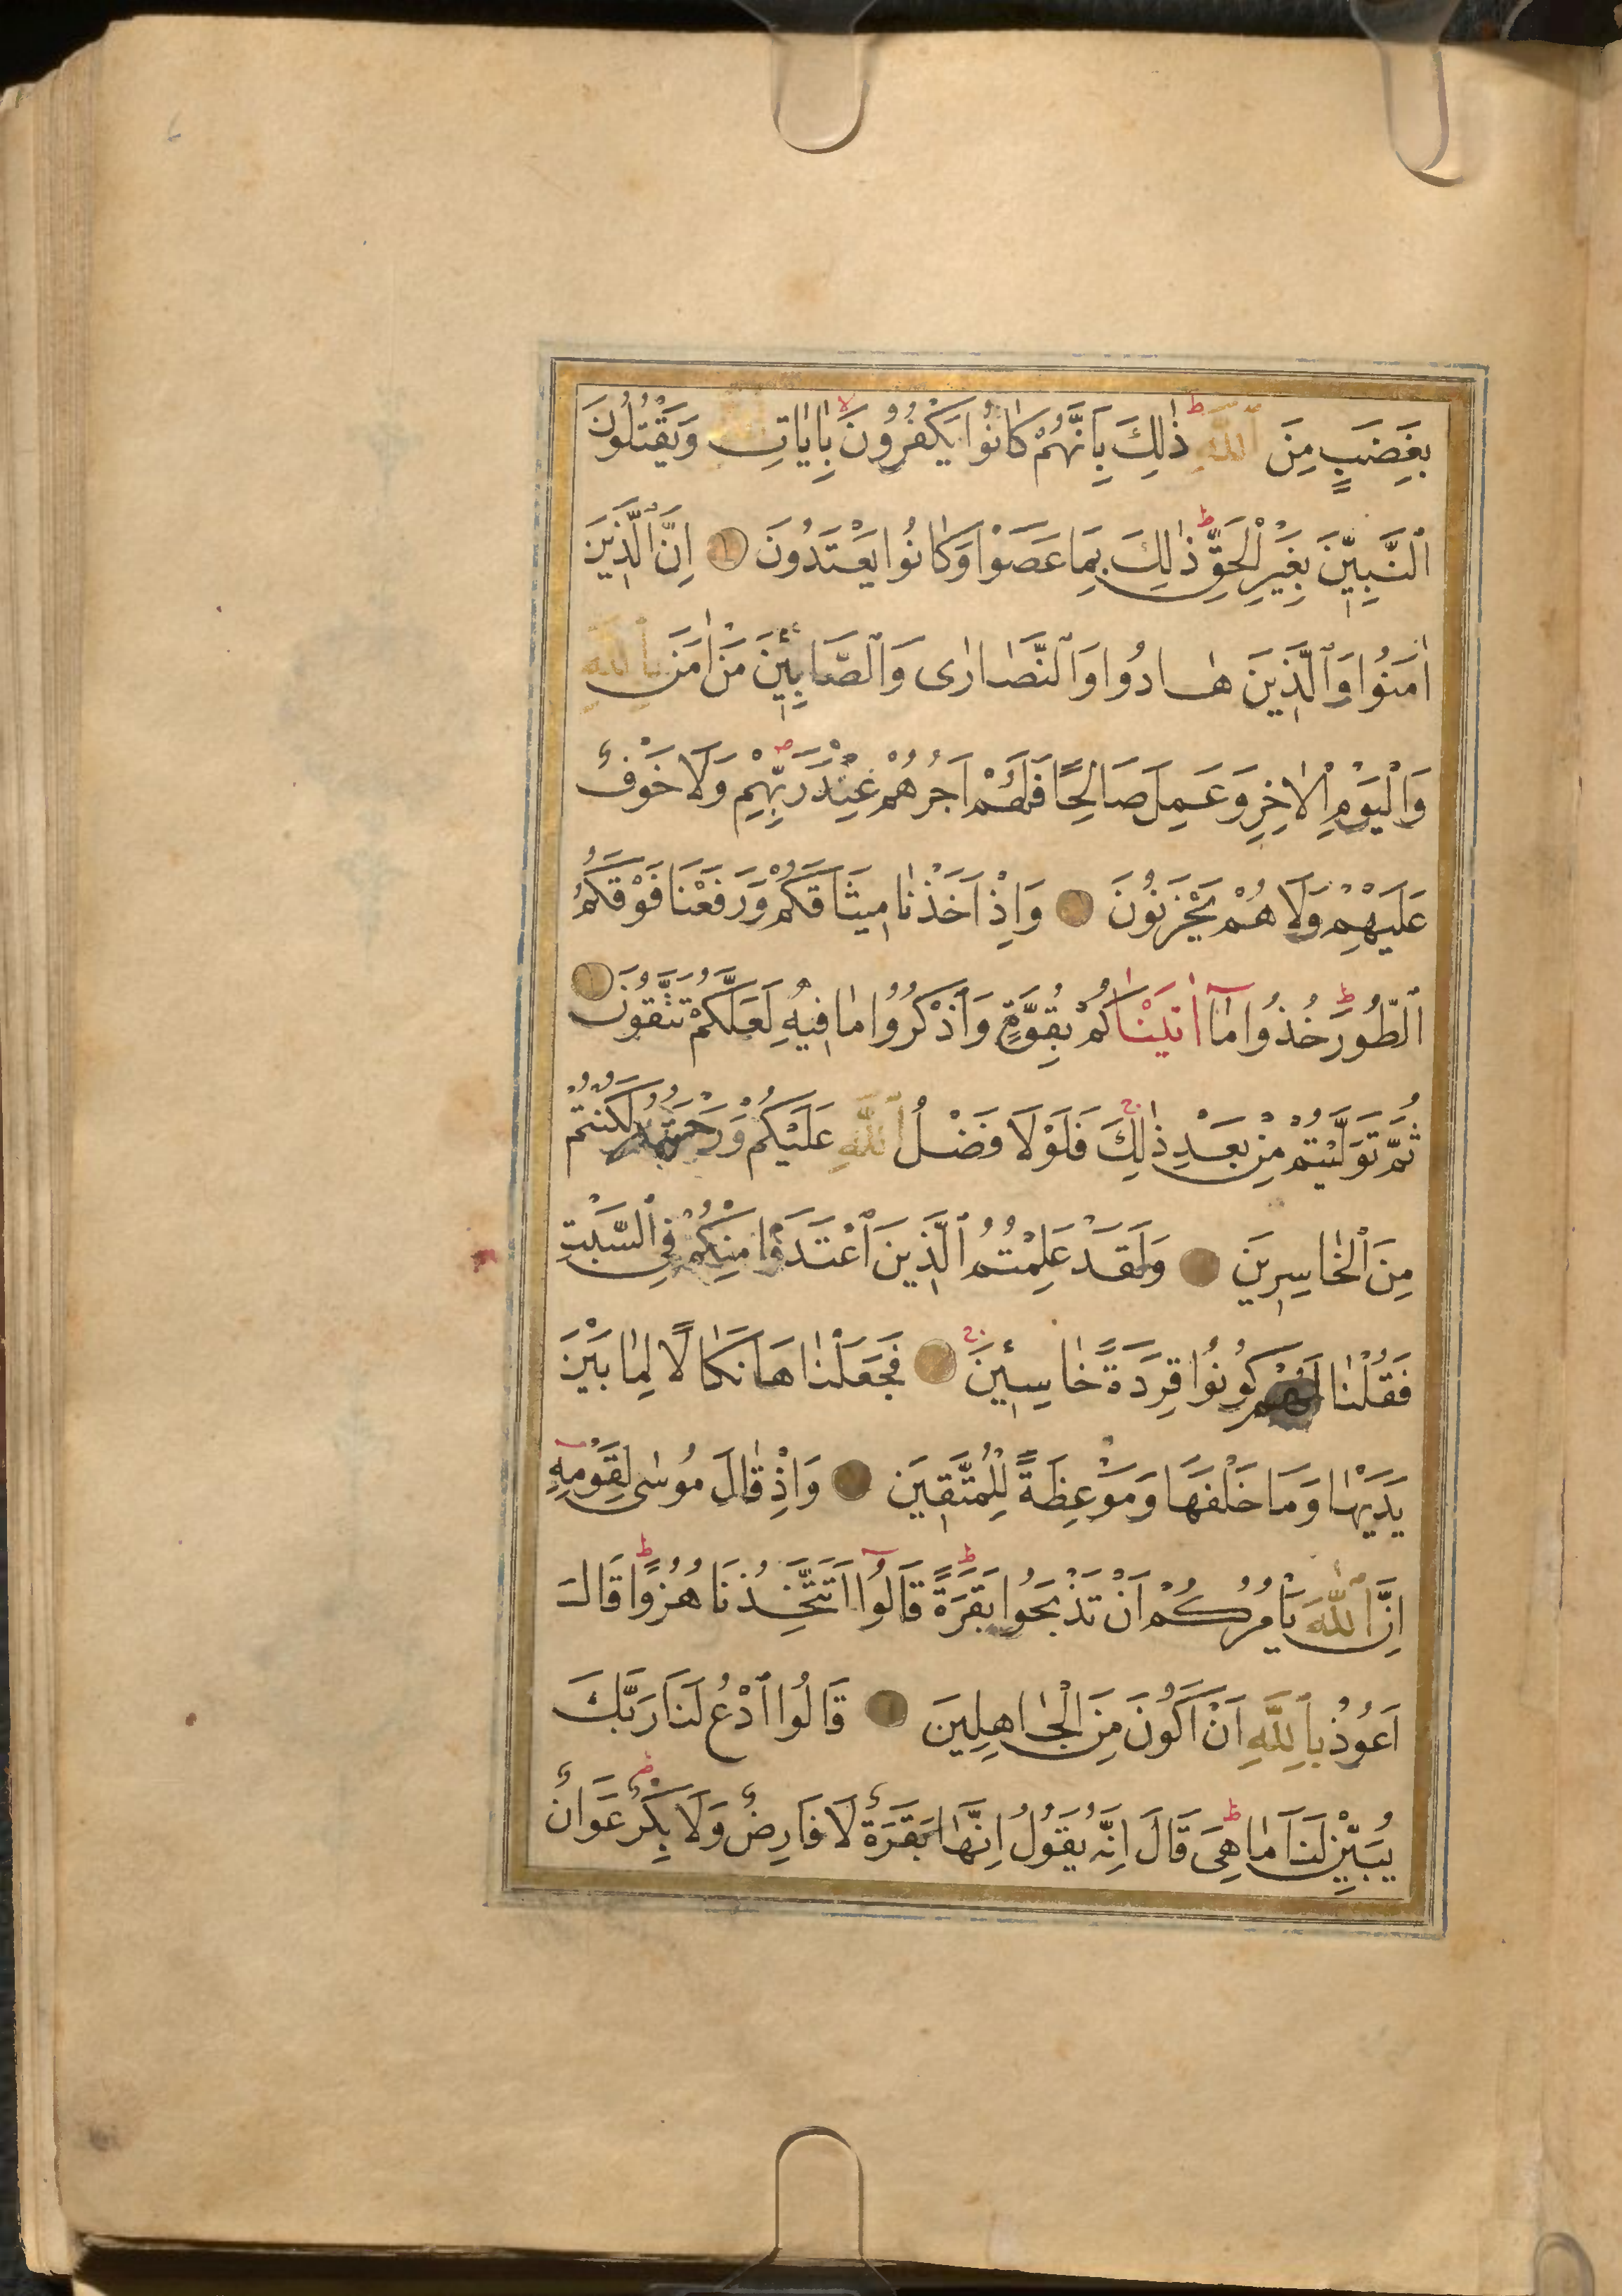 بِغَضَبٍ مِنَ ٱللّٰهِ ذٰلِكَ بِاَنَّهُمْ كَانُوا يَكْفُرُونَ بِاٰيَاتِ وَيَقْتُلُونَ
ٱلنَّبِيّٖنَ بِغَيْرِ الْحَقِّ ذٰلِكَ بِمَا عَصَوْا وَكَانُوا يَعْتَدُونَ اِنَّ ٱلَّذٖينَ
اٰمَنُوا وَٱلَّذٖينَ هَادُوا وَٱلنَّصَارٰى وَٱلصَّابِـٖٔينَ مَنْ اٰمَنَ بِٱللّٰهِ
وَٱلْيَوْمِ الْاٰخِرِ وَعَمِلَ صَالِحًا فَلَهُمْ اَجْرُهُمْ عِنْدَ رَبِّهِمْ وَلَا خَوْفٌ
عَلَيْهِمْ وَلَا هُمْ يَحْزَنُونَ وَاِذْ اَخَذْنَا مٖيثَاقَكُمْ وَرَفَعْنَا فَوْقَكُمُ
ٱلطُّورَ خُذُوا مَٓا اٰتَيْنَاكُمْ بِقُوَّةٍ وَٱذْكُرُوا مَا فٖيهِ لَعَلَّكُمْ تَتَّقُونَ
ثُمَّ تَوَلَّيْتُمْ مِنْ بَعْدِ ذٰلِكَ فَلَوْلَا فَضْلُ ٱللّٰهِ عَلَيْكُمْ وَرَحْمَتُهُ لَكُنْتُمْ
مِنَ ٱلْخَاسِرٖينَ وَلَقَدْ عَلِمْتُمُ ٱلَّذٖينَ ٱعْتَدَوْا مِنْكُمْ فِي ٱلسَّبْتِ
فَقُلْنَا لَهُمْ كُونُوا قِرَدَةً خَاسِـٖٔينَ فَجَعَلْنَاهَا نَكَالًا لِمَا بَيْنَ
يَدَيْهَا وَمَا خَلْفَهَا وَمَوْعِظَةً لِلْمُتَّقٖينَ وَاِذْ قَالَ مُوسٰى لِقَوْمِهٖٓ
اِنَّ ٱللّٰهَ يَأْمُرُكُمْ اَنْ تَذْبَحُوا بَقَرَةً قَالُوٓا اَتَتَّخِذُنَا هُزُوًا قَالَ
اَعُوذُ بِٱللّٰهِ اَنْ اَكُونَ مِنَ الْجَاهِلِينَ قَالُوا ٱدْعُ لَنَا رَبَّكَ
يُبَيِّنْ لَنَا مَا هِيَ قَالَ اِنَّهُ يَقُولُ اِنَّهَا بَقَرَةٌ لَا فَارِضٌ وَلَا بِكْرٌ عَوَانٌ